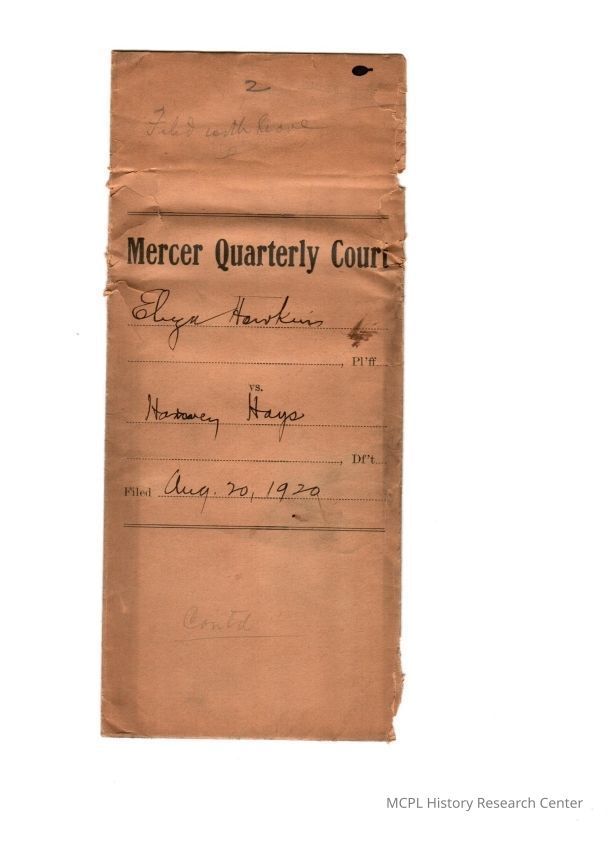 2
Filed with leave
Mercer Quarterly Court
Hawkins
, Pl'ff
vs.
Harvey Hays
, Df't
Filed Aug. 20, 1920
Cont'd
MCPL History Research Center